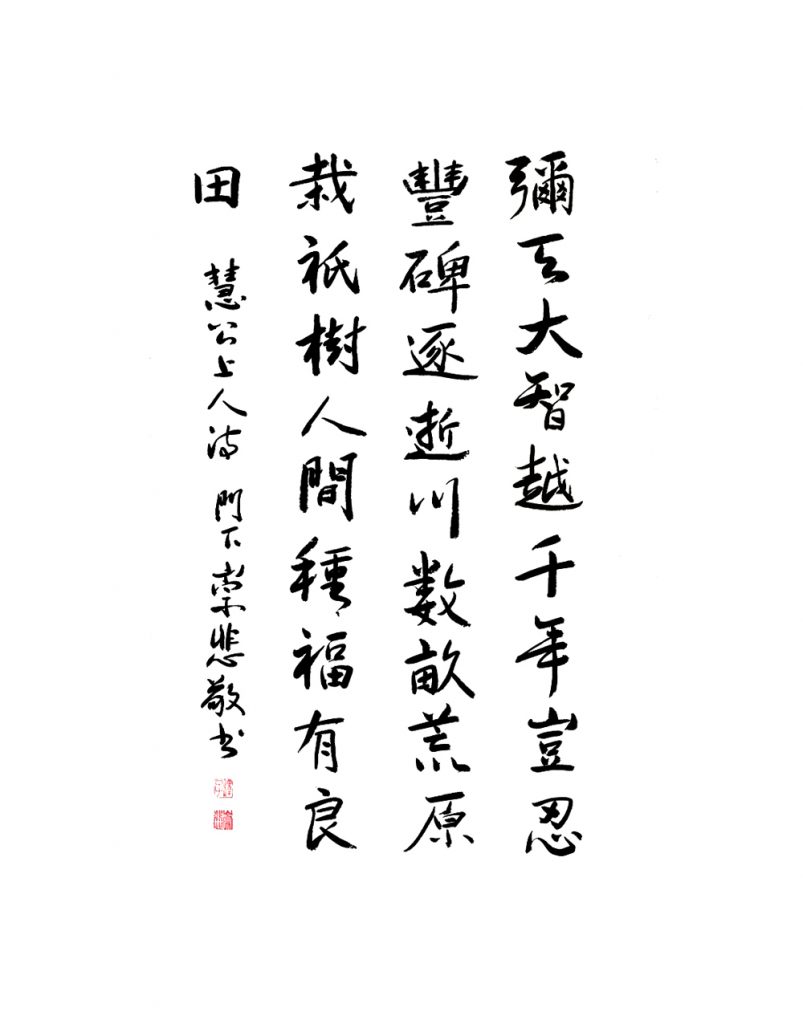 彌天大智越千年豈忍
豐碑逐逝川數畝荒原
栽祇樹人間種福有良
田
慧公上人詩 門下崇悲敬书